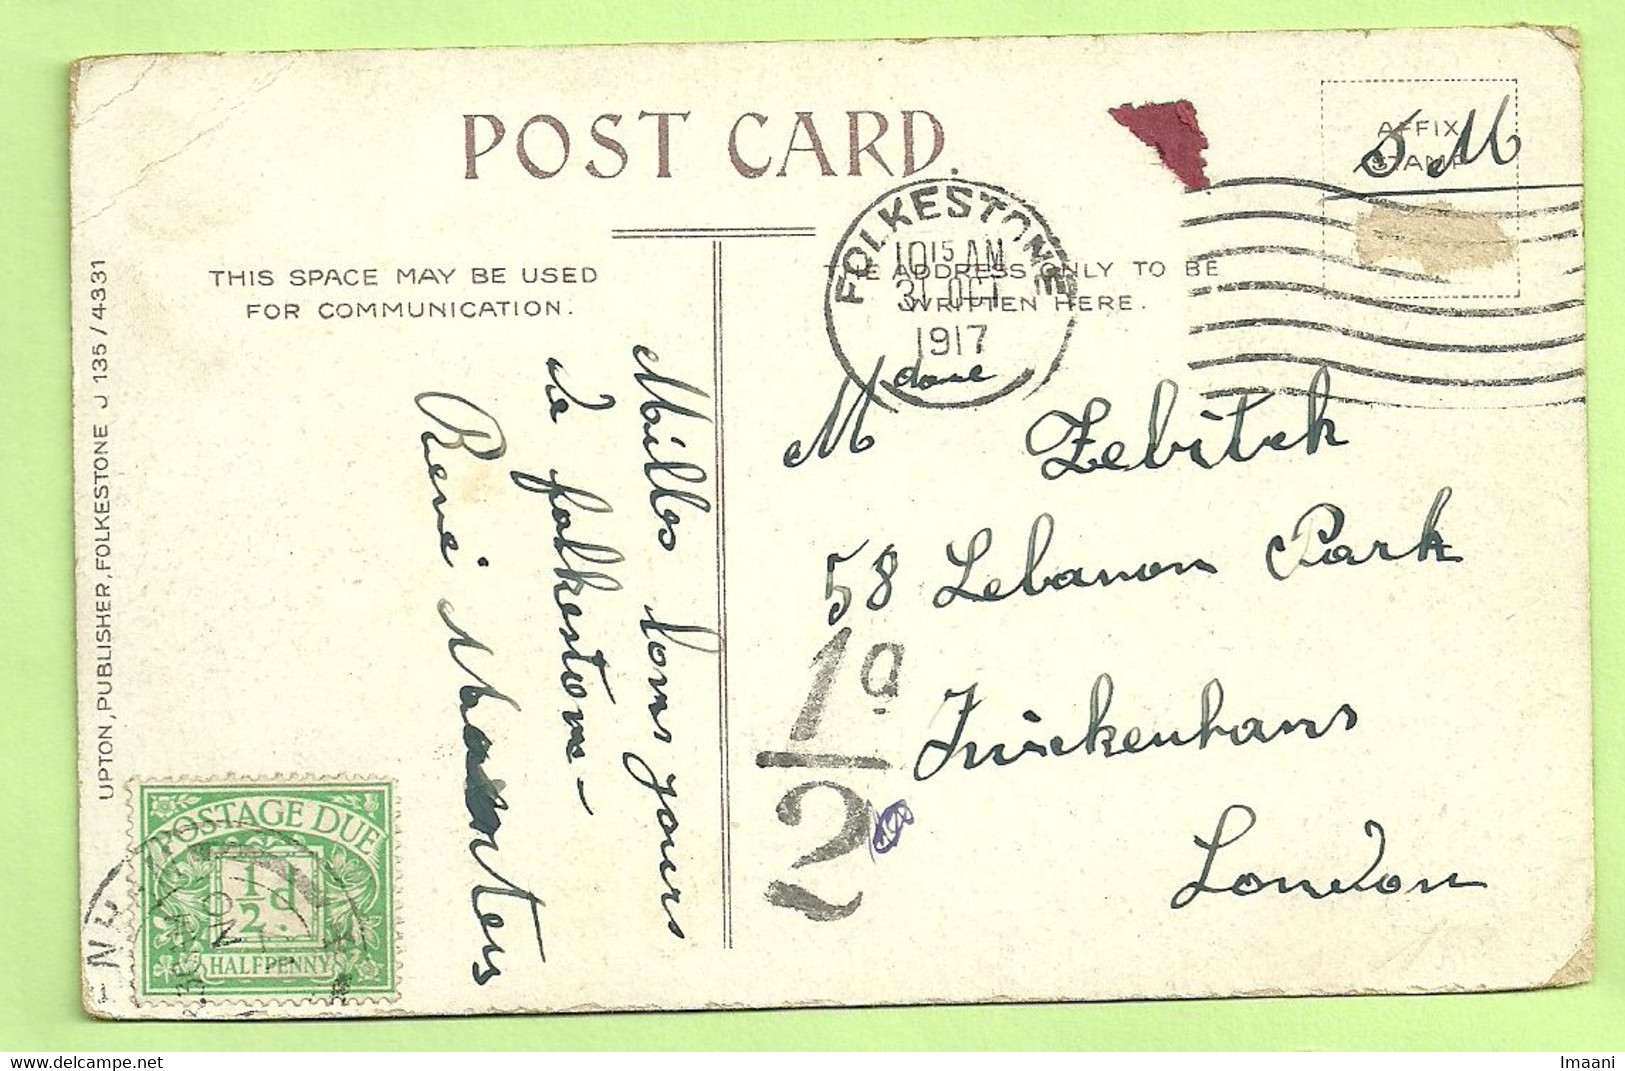 POST CARD.
AFFIX
STAMP
S M
THIS SPACE MAY BE USED
FOR COMMUNICATION.
THE ADDRESS ONLY TO BE
WRITTEN HERE.
FOLKESTONE
10 15 AM
31 OCT
1917
UPTON, PUBLISHER, FOLKESTONE J 135/4331
bons jours
de folkestone -
René
M
Zebitch
58 Lebanon Park
London
1d
/2
POSTAGE DUE
½d.
HALFPENNY
Imaani